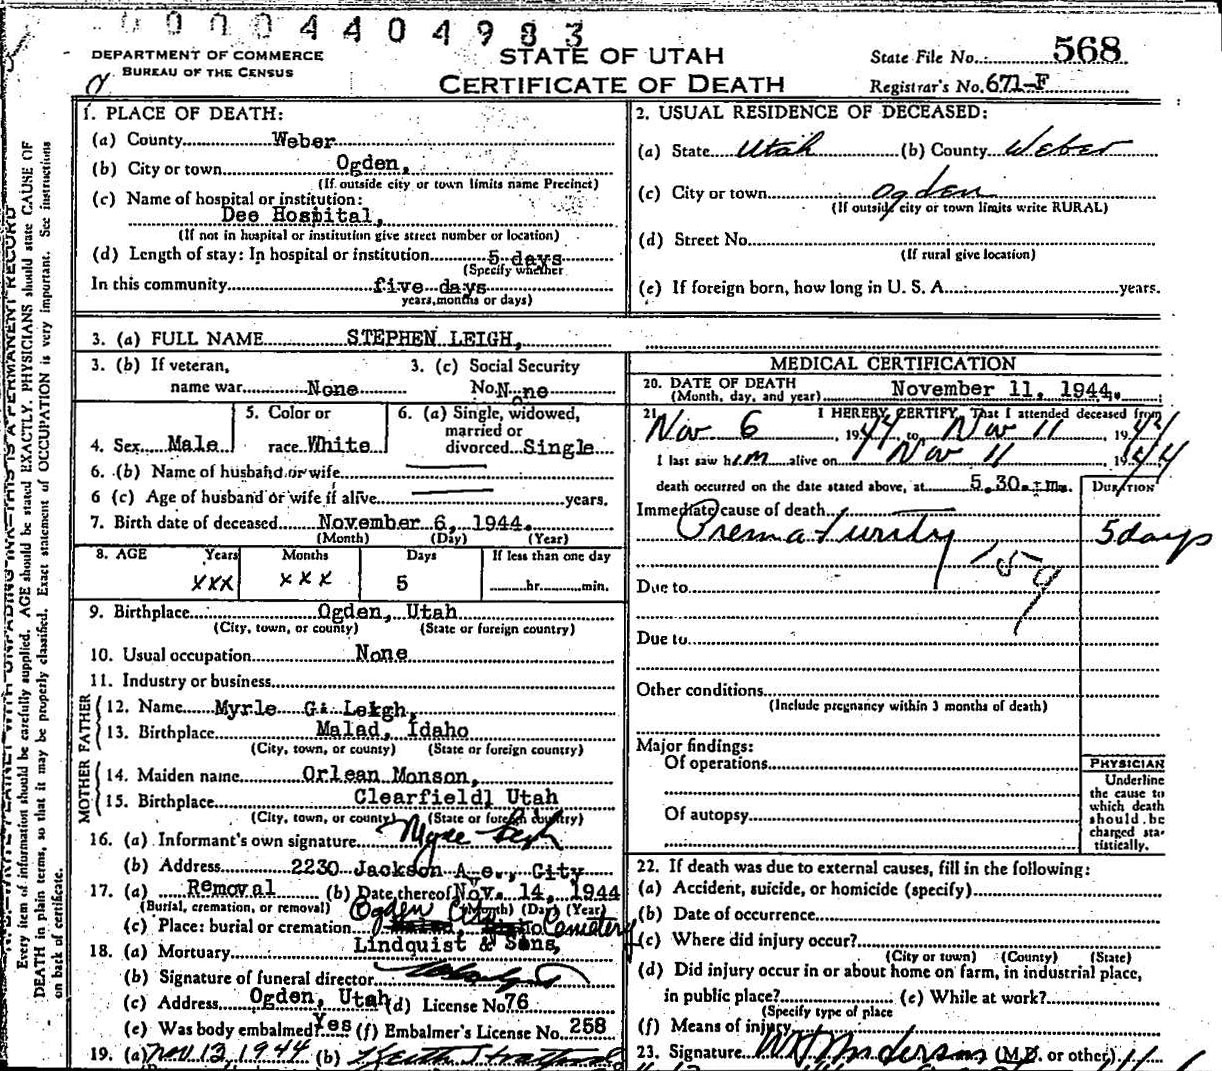 00004404983
DEPARTMENT OF COMMERCE
BUREAU OF THE CENSUS
STATE OF UTAH
CERTIFICATE OF DEATH
State File No. 568
Registrar's No. 671-F
1. PLACE OF DEATH:
(a) County Weber
(b) City or town Ogden,
(If outside city or town limits name Precinct)
(c) Name of hospital or institution:
Dee Hospital,
(If not in hospital or institution give street number or location)
(d) Length of stay: In hospital or institution 5 days
(Specify whether
In this community five days
years, months or days)
2. USUAL RESIDENCE OF DECEASED:
(a) State Utah (b) County Weber
(c) City or town Ogden
(If outside city or town limits write RURAL)
(d) Street No.
(If rural give location)
(e) If foreign born, how long in U. S. A. years.
3. (a) FULL NAME STEPHEN LEIGH,
3. (b) If veteran,
name war None
3. (c) Social Security
No. None
4. Sex Male
5. Color or
race White
6. (a) Single, widowed,
married or
divorced Single
6. (b) Name of husband or wife
6 (c) Age of husband or wife if alive years.
7. Birth date of deceased November 6, 1944.
(Month) (Day) (Year)
8. AGE Years Months Days If less than one day
xxx xxx 5 hr. min.
9. Birthplace Ogden, Utah
(City, town, or county) (State or foreign country)
10. Usual occupation None
11. Industry or business
FATHER
12. Name Myrle G. Leigh,
13. Birthplace Malad, Idaho
(City, town, or county) (State or foreign country)
MOTHER
14. Maiden name Orlean Monson,
15. Birthplace Clearfield, Utah
(City, town, or county) (State or foreign country)
16. (a) Informant's own signature Myrle Leigh
(b) Address 2230 Jackson A e., City
17. (a) Removal (b) Date thereof Nov. 14, 1944
(Burial, cremation, or removal) (Month) (Day) (Year)
(c) Place: burial or cremation Ogden City Cemetery
18. (a) Mortuary Lindquist & Sons,
(b) Signature of funeral director
(c) Address Ogden, Utah (d) License No. 76
(e) Was body embalmed? Yes (f) Embalmer's License No. 258
19. (a) Nov 13, 1944 (b) Keith Stratford
MEDICAL CERTIFICATION
20. DATE OF DEATH November 11, 1944.
(Month, day, and year)
21. I HEREBY CERTIFY, That I attended deceased from
Nov 6, 1944 to Nov 11, 1944
I last saw him alive on Nov 11, 1944
death occurred on the date stated above, at 5.30. m.
DURATION
Immediate cause of death
Prematurity 5 days
159
Due to
Due to
Other conditions
(Include pregnancy within 3 months of death)
Major findings:
Of operations
Of autopsy
PHYSICIAN
Underline
the cause to
which death
should be
charged sta-
tistically.
22. If death was due to external causes, fill in the following:
(a) Accident, suicide, or homicide (specify)
(b) Date of occurrence
(c) Where did injury occur?
(City or town) (County) (State)
(d) Did injury occur in or about home on farm, in industrial place,
in public place? (e) While at work?
(Specify type of place
(f) Means of injury
23. Signature Anderson (M.D. or other)
Every item of information should be carefully supplied. AGE should be stated EXACTLY. PHYSICIANS should state CAUSE OF
DEATH in plain terms, so that it may be properly classified. Exact statement of OCCUPATION is very important. See instructions
on back of certificate.